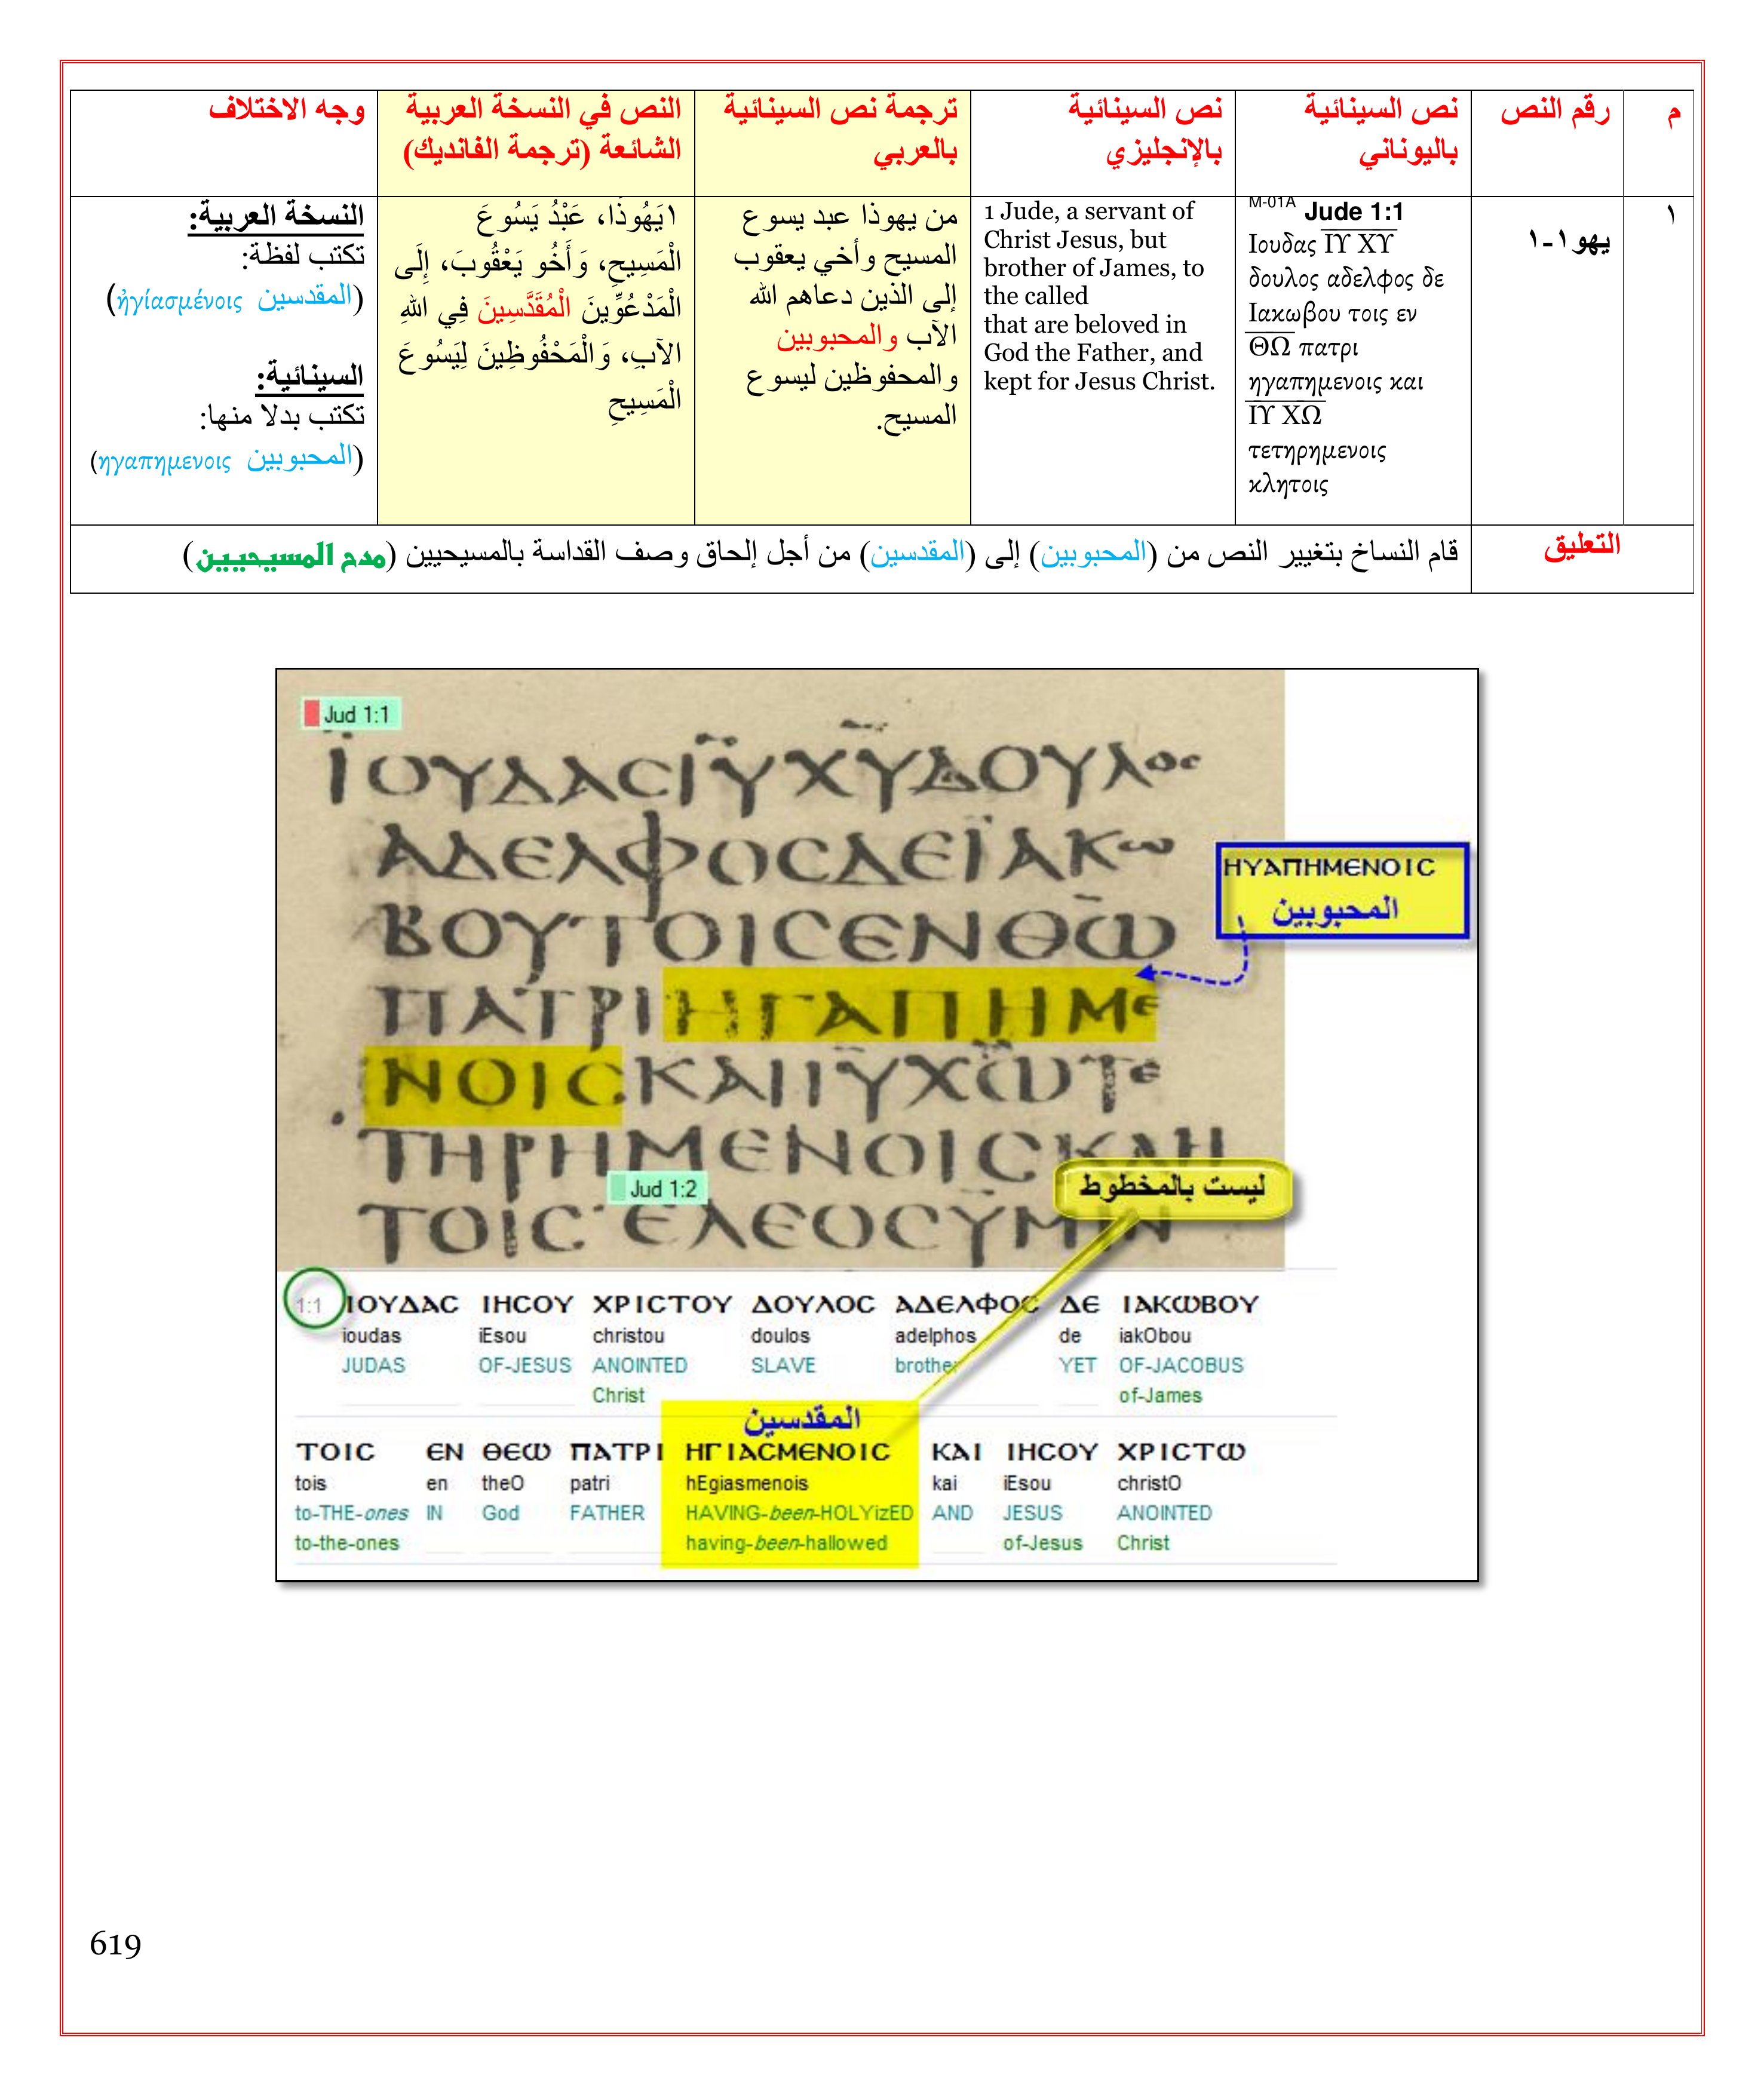 م
رقم النص
نص السينائية
باليوناني
نص السينائية
بالإنجليزي
ترجمة نص السينائية
بالعربي
النص في النسخة العربية
الشائعة (ترجمة الفانديك)
وجه الاختلاف
١
يهو١-١
M-01A Jude 1:1
Ιουδας ΙΥ ΧΥ
δουλος αδελφος δε
Ιακωβου τοις εν
ΘΩ πατρι
ηγαπημενοις και
ΙΥ ΧΩ
τετηρημενοις
κλητοις
1 Jude, a servant of
Christ Jesus, but
brother of James, to
the called
that are beloved in
God the Father, and
kept for Jesus Christ.
من يهوذا عبد يسوع
المسيح وأخي يعقوب
إلى الذين دعاهم الله
الآب والمحبوبين
والمحفوظين ليسوع
المسيح.
١يَهُوذَا، عَبْدُ يَسُوعَ
الْمَسِيحِ، وَأَخُو يَعْقُوبَ، إِلَى
الْمَدْعُوِّينَ الْمُقَدَّسِينَ فِي اللهِ
الآبِ، وَالْمَحْفُوظِينَ لِيَسُوعَ
الْمَسِيحِ
النسخة العربية:
تكتب لفظة:
(المقدسين ἡγίασμένοις)
السينائية:
تكتب بدلا منها:
(المحبوبين ηγαπημενοις)
التعليق
قام النساخ بتغيير النص من (المحبوبين) إلى (المقدسين) من أجل إلحاق وصف القداسة بالمسيحيين (مدح المسيحيين)
Jud 1:1
ΪΟΥΔΑCΙΥΧΥΔΟΥΛΟC
ΑΔΕΛΦΟCΔΕΪΑΚω
ΒΟΥΤΟΙCΕΝΘω
ΠΑΤΡΙΗΓΑΠΗΜΕ
ΝΟΙCΚΑΙΙΥΧωΤΕ
ΤΗΡΗΜΕΝΟΙCΚΛΗ
ΤΟΙC ΕΛΕΟCΥΜΙΝ
ΗΥΑΠΗΜΕΝΟΙC
المحبوبين
Jud 1:2
ليست بالمخطوط
1:1 ΙΟΥΔΑC ΙΗCΟΥ ΧΡΙCΤΟΥ ΔΟΥΛΟC ΑΔΕΛΦΟC ΔΕ ΙΑΚωΒΟΥ
ioudas iEsou christou doulos adelphos de iakObou
JUDAS OF-JESUS ANOINTED SLAVE brother YET OF-JACOBUS
Christ of-James
المقدسين
ΤΟΙC ΕΝ ΘΕω ΠΑΤΡΙ ΗΓΙΑCΜΕΝΟΙC ΚΑΙ ΙΗCΟΥ ΧΡΙCΤω
tois en theO patri hEgiasmenois kai iEsou christO
to-THE-ones IN God FATHER HAVING-been-HOLYizED AND JESUS ANOINTED
to-the-ones having-been-hallowed of-Jesus Christ
619